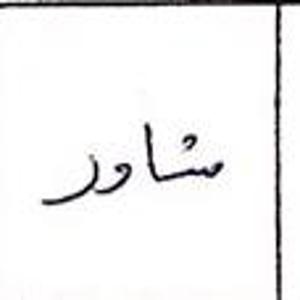 مشاور